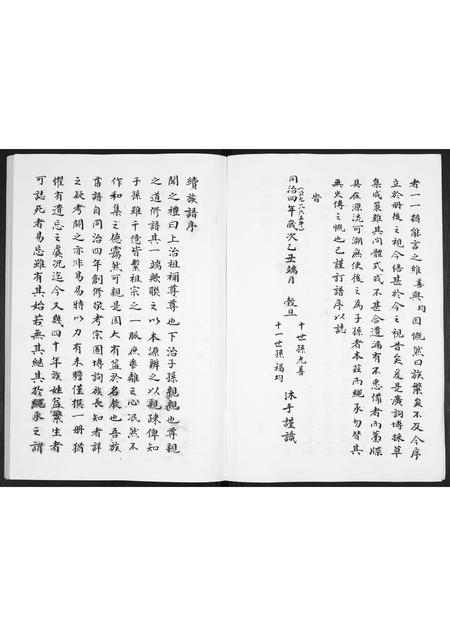 者一一猶能言之維善與均因慨然曰族繁矣不及今序
立於册後之視今倍甚於今之視昔矣爰是廣詢博採草
集成篆雖其间體式或不甚合遺漏有不悉備者而萬牒
具在源流可溯庶使後之為子孫者本茲而繩承勿替其
無失傳之慨也已謹訂譜序以誌
旹
(公元一八六五年)
同治四年歲次乙丑端月 穀旦
十世孫光善
十一世孫福均
沐手謹識
續族譜序
聞之禮曰上治祖禰尊尊也下治子孫親親也尊親
之道修譜其一端歟聯之以本源辨之以親疎俾知
子孫雖千億皆繫祖宗之一脈庶乖離之心泯然不
作和集之德靄然可親是固大有益於名教也吾族
舊譜自同治四年創修欲考宗圖博詢族長知者詳
之疑考闕之亦非易易特以力有未贍僅撰一册猶
懼有遺忘之虞況迄今又幾四十年族姓益繁生者
可誌死者易忘雖有其始若無其繼其於繩承之謂